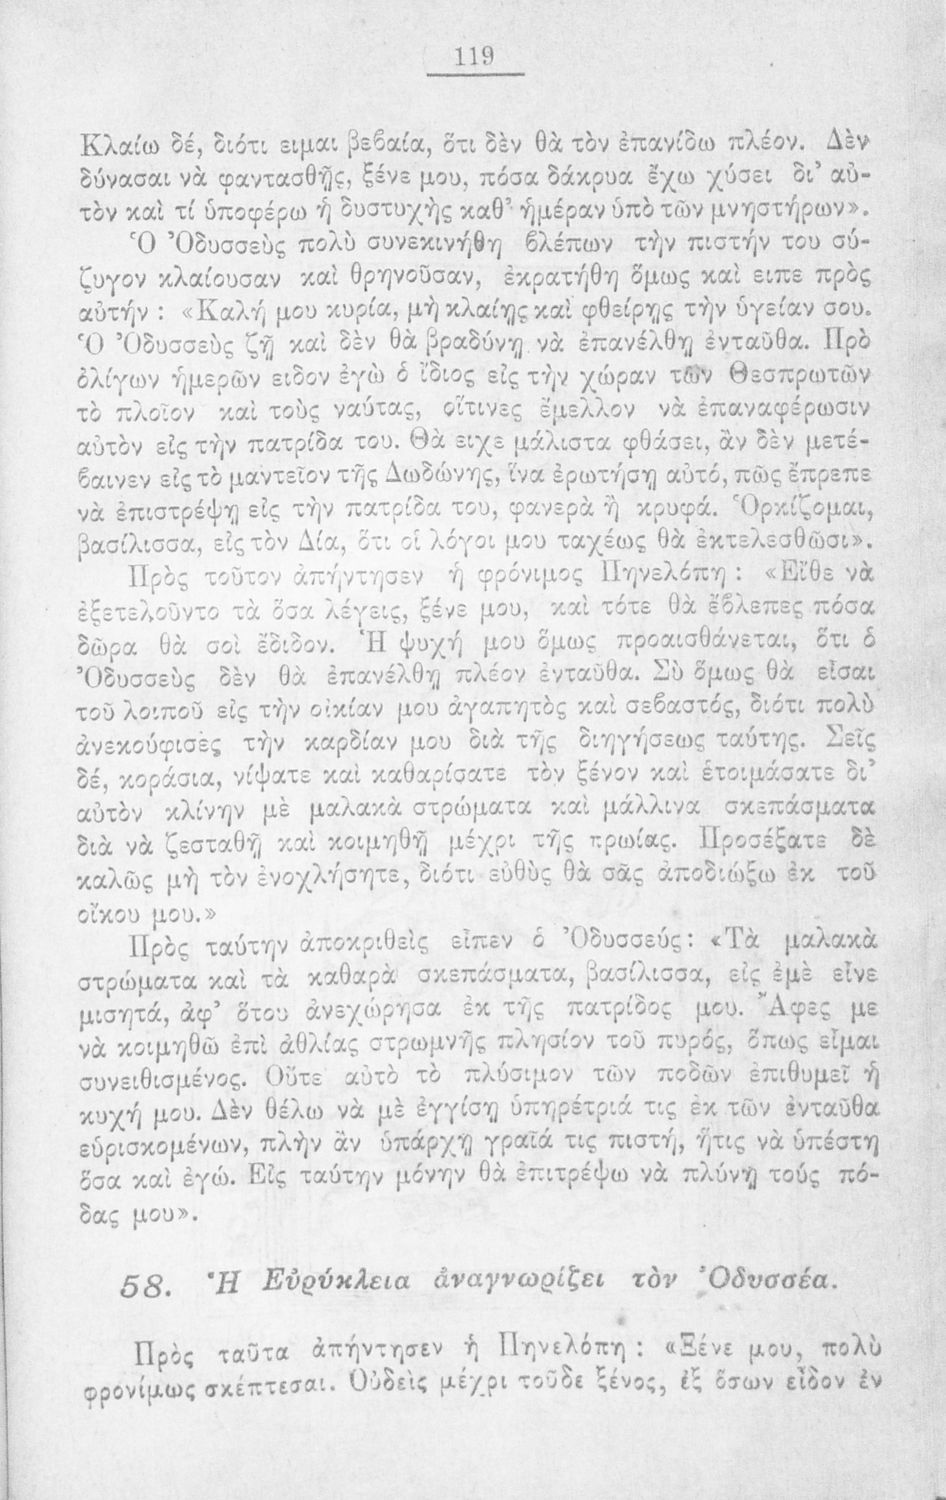 119
Κλαίω δέ, διότι ειμαι βεβαία, ὅτι δὲν θὰ τὸν ἐπανίδω πλέον. Δὲν
δύνασαι νὰ φαντασθῇς, ξένε μου, πόσα δάκρυα ἔχω χύσει δι' αὐ-
τὸν καὶ τί ὑποφέρω ἡ δυστυχὴς καθ' ἡμέραν ὑπὸ τῶν μνηστήρων».
Ὁ Ὀδυσσεὺς πολὺ συνεκινήθη βλέπων τὴν πιστήν του σύ-
ζυγον κλαίουσαν καὶ θρηνοῦσαν, ἐκρατήθη ὅμως καὶ ειπε πρὸς
αὐτήν : «Καλή μου κυρία, μὴ κλαίῃς καὶ φθείρῃς τὴν ὑγείαν σου.
Ὁ Ὀδυσσεὺς ζῇ καὶ δὲν θὰ βραδύνῃ νὰ ἐπανέλθῃ ἐνταῦθα. Πρὸ
ὀλίγων ἡμερῶν ειδον ἐγὼ ὁ ἴδιος εἰς τὴν χώραν τῶν Θεσπρωτῶν
τὸ πλοῖον καὶ τοὺς ναύτας, οἵτινες ἔμελλον νὰ ἐπαναφέρωσιν
αὐτὸν εἰς τὴν πατρίδα του. Θὰ ειχε μάλιστα φθάσει, ἂν δὲν μετέ-
βαινεν εἰς τὸ μαντεῖον τῆς Δωδώνης, ἵνα ἐρωτήσῃ αὐτό, πῶς ἔπρεπε
νὰ ἐπιστρέψῃ εἰς τὴν πατρίδα του, φανερὰ ἢ κρυφά. Ὁρκίζομαι,
βασίλισσα, εἰς τὸν Δία, ὅτι οἱ λόγοι μου ταχέως θὰ ἐκτελεσθῶσι».
Πρὸς τοῦτον ἀπήντησεν ἡ φρόνιμος Πηνελόπη : «Εἴθε νὰ
ἐξετελοῦντο τὰ ὅσα λέγεις, ξένε μου, καὶ τότε θὰ ἔβλεπες πόσα
δῶρα θὰ σοὶ ἔδιδον. Ἡ ψυχή μου ὅμως προαισθάνεται, ὅτι ὁ
Ὀδυσσεὺς δὲν θὰ ἐπανέλθῃ πλέον ἐνταῦθα. Σὺ ὅμως θὰ εἶσαι
τοῦ λοιποῦ εἰς τὴν οἰκίαν μου ἀγαπητὸς καὶ σεβαστός, διότι πολὺ
ἀνεκούφισες τὴν καρδίαν μου διὰ τῆς διηγήσεως ταύτης. Σεῖς
δέ, κοράσια, νίψατε καὶ καθαρίσατε τὸν ξένον καὶ ἑτοιμάσατε δι'
αὐτὸν κλίνην μὲ μαλακὰ στρώματα καὶ μάλλινα σκεπάσματα
διὰ νὰ ζεσταθῇ καὶ κοιμηθῇ μέχρι τῆς πρωίας. Προσέξατε δὲ
καλῶς μὴ τὸν ἐνοχλήσητε, διότι εὐθὺς θὰ σᾶς ἀποδιώξω ἐκ τοῦ
οἴκου μου.»
Πρὸς ταύτην ἀποκριθεὶς εἶπεν ὁ Ὀδυσσεύς: «Τὰ μαλακὰ
στρώματα καὶ τὰ καθαρὰ σκεπάσματα, βασίλισσα, εἰς ἐμὲ εἶνε
μισητά, ἀφ' ὅτου ἀνεχώρησα ἐκ τῆς πατρίδος μου. Ἄφες με
νὰ κοιμηθῶ ἐπὶ ἀθλίας στρωμνῆς πλησίον τοῦ πυρός, ὅπως εἶμαι
συνειθισμένος. Οὔτε αὐτὸ τὸ πλύσιμον τῶν ποδῶν ἐπιθυμεῖ ἡ
κυχή μου. Δὲν θέλω νὰ μὲ ἐγγίσῃ ὑπηρέτριά τις ἐκ τῶν ἐνταῦθα
εὑρισκομένων, πλὴν ἂν ὑπάρχῃ γραῖά τις πιστή, ἥτις νὰ ὑπέστη
ὅσα καὶ ἐγώ. Εἰς ταύτην μόνην θὰ ἐπιτρέψω νὰ πλύνῃ τούς πό-
δας μου».
58. Ἡ Εὐρύκλεια ἀναγνωρίζει τὸν Ὀδυσσέα.
Πρὸς ταῦτα ἀπήντησεν ἡ Πηνελόπη : «Ξένε μου, πολὺ
φρονίμως σκέπτεσαι. Οὐδεὶς μέχρι τοῦδε ξένος, ἐξ ὅσων εἶδον ἐν